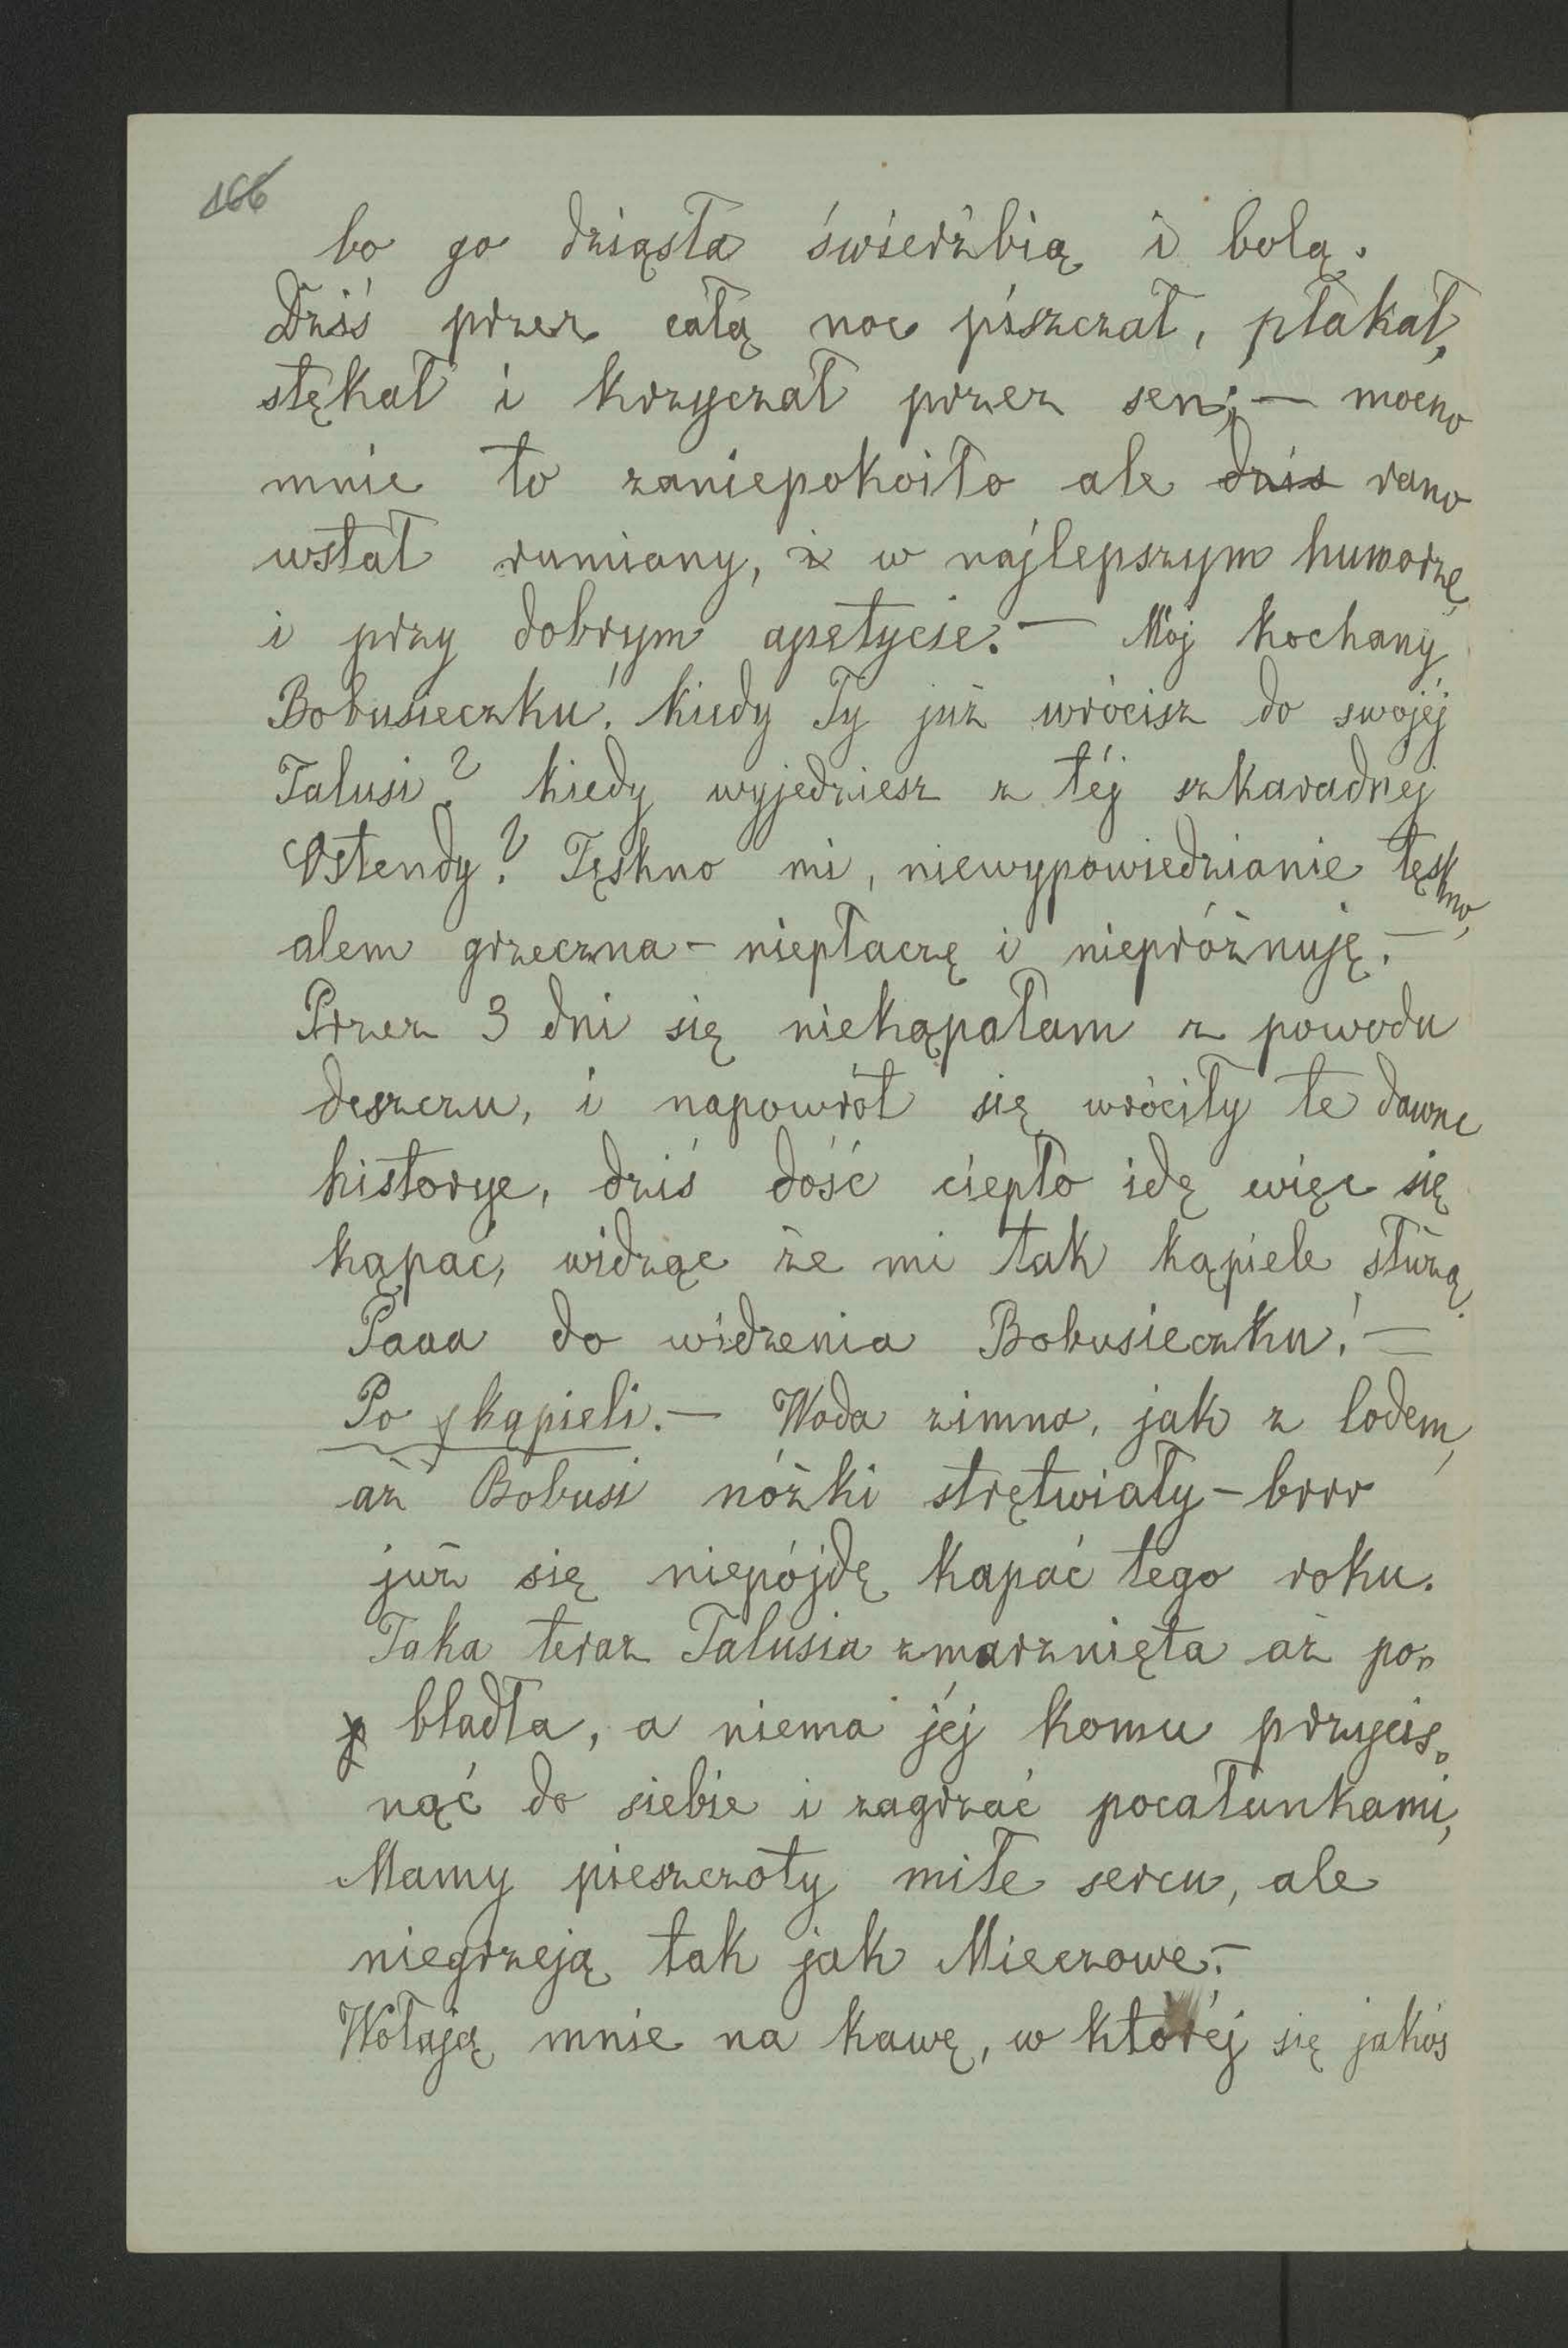 166
bo go dziąsła świerzbią i bolą.
Dziś przez całą noc piszczał, płakał,
stękał i krzyczał przez sen; — mocno
mnie to zaniepokoiło ale dziś rano
wstał rumiany, i w najlepszym humorze,
i przy dobrym apetycie. — Mój kochany
Bobusieczku! kiedy Ty już wrócisz do swojéj
Talusi? kiedy wyjedziesz z téj szkaradnej
Ostendy? Tęskno mi, niewypowiedzianie tęskno,
alem grzeczna — niepłaczę i niepróżnuję. —
Przez 3 dni się niekąpałam z powodu
deszczu, i napowrót się wróciły te dawne
historye, dziś dość ciepło idę więc się
kąpać, widząc że mi tak kąpiele służą.
Paaa do widzenia Bobusieczku! —
Po kąpieli. — Woda zimna, jak z lodem,
aż Bobusi nóżki strętwiały — brrr
już się niepójdę kapać tego roku.
Taka teraz Talusia zmarznięta aż po-
bladła, a niema jéj komu przycis-
nąć do siebie i zagrzać pocałunkami,
Mamy pieszczoty miłe sercu, ale
niegrzeją tak jak Mieczowe. —
Wołają mnie na kawę, w któréj się jakoś